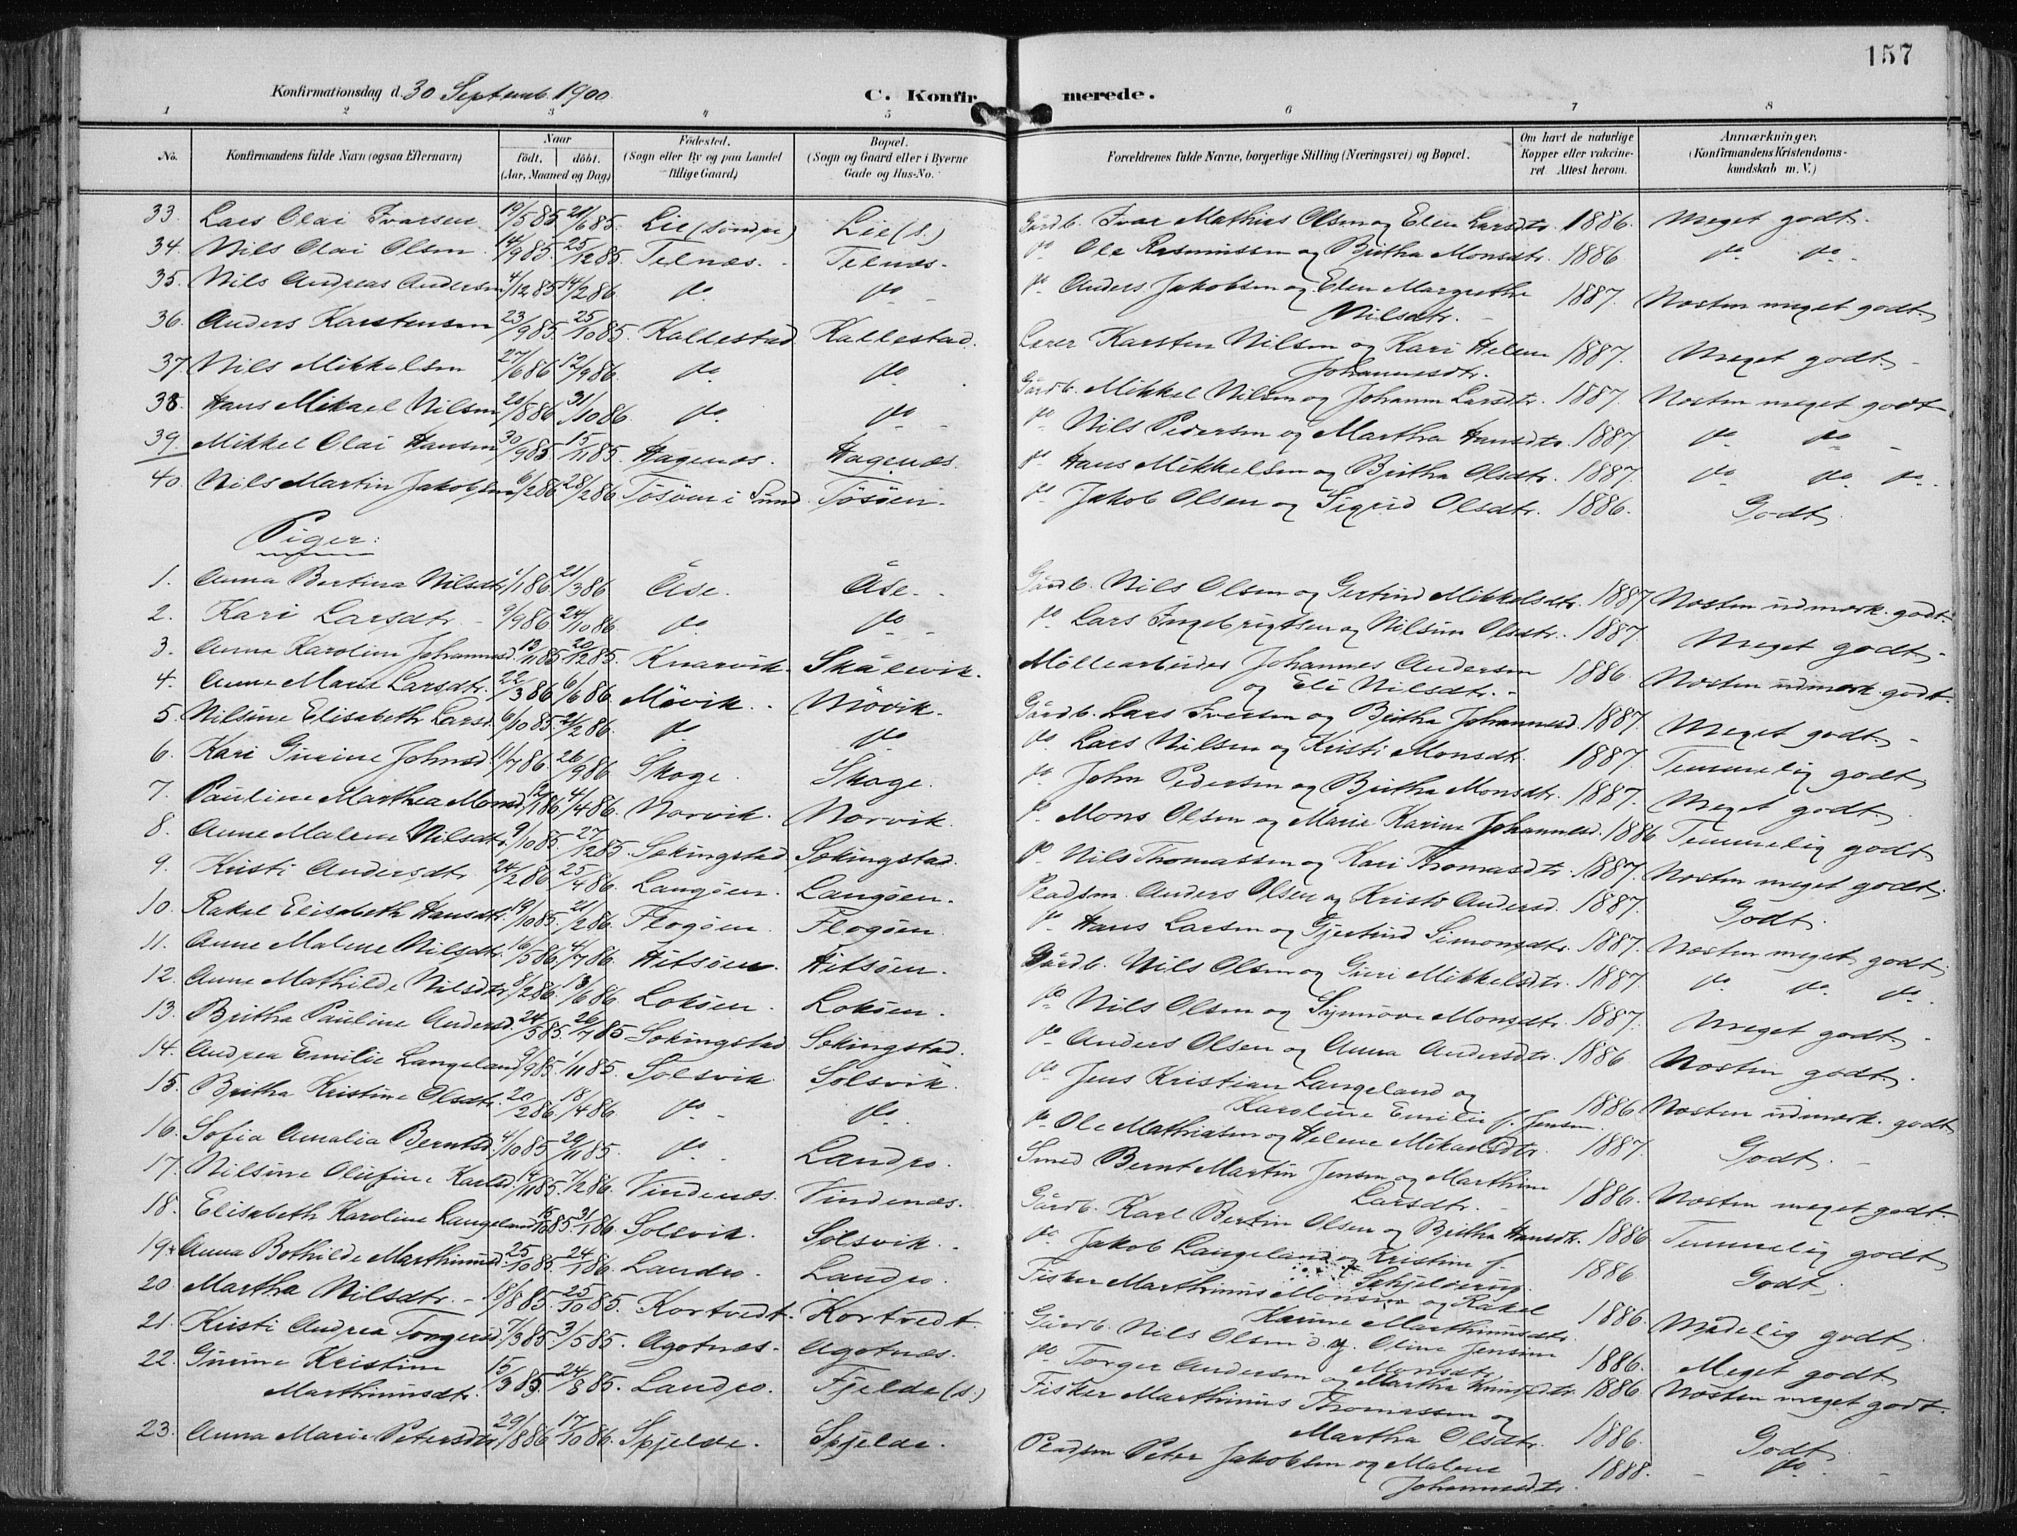 157
Konfirmationsdag d. 30 Septemb. 1900.
C. Konfirmerede.
1 2 3 4 5 6 7 8
No. Konfirmandens fulde Navn (ogsaa Efternavn) Naar født. døbt. (Aar, Maaned og Dag) Fødested. (Sogn eller By og paa Landet tillige Gaard) Bopæl. (Sogn og Gaard eller i Byerne Gade og Hus-No. Forældrenes fulde Navne, borgerlige Stilling (Næringsvei) og Bopæl. Om havt de naturlige Kopper eller vakcineret. Attest herom. Anmærkninger. (Konfirmandens Kristendomskundskab m. V.)
33. Lars Olai Ivarsen 19/5 85 21/6 85. Lie (søndre) Lie (s.) Gårdb. Ivar Mathias Olsen og Elen Larsdtr. 1886. Meget godt.
34. Nils Olai Olsen 14/9 85. 25/12 85. Telnæs. Telnæs. do Ole Rasmussen og Birtha Monsdtr. 1886 do do
35. Nils Andreas Andersen 4/12 85 14/2 86. do. do. do Anders Jakobsen og Elen Margrethe Nilsdtr. 1887. Næsten meget godt.
36. Anders Karstensen 23/9 85. 25/10 85. Kallestad Kallestad. Lærer Karsten Nilsen og Kari Helene Johannesdtr. 1887. Meget godt
37. Nils Mikkelsen 27/6 86 12/9 86. do. do. Gårdb. Mikkel Nilsen og Johanne Larsdtr. 1887. Næsten meget godt
38. Hans Mikael Nilsen 20/8 86 31/10 86. do. do. do Nils Pedersen og Martha Hansdtr. 1887 do do
39. Mikkel Olai Hansen 30/9 85 15/11 85. Hagenæs. Hagenæs. do Hans Mikkelsen og Birtha Olsdtr. 1887. do do do.
40. Nils Martin Jakobsen 6/2 86 28/2 86 Tøsøen i Sund Tøsøen. do Jakob Olsen og Sigrid Olsdtr. 1886. Godt
Piger:
1. Anna Bertina Nilsdtr. 1/1 86. 21/3 86 Åse. Åse. Gårdb. Nils Olsen og Gertrud Mikkelsdtr. 1887 Næsten udmærk. godt.
2. Kari Larsdtr. 9/9 86 24/10 86. do. do. do Lars Ingebrigtsen og Nilsine Olsdtr. 1887. Meget godt
3. Anna Karoline Johannesd. 13/11 85 20/12 85. Knarvik. Skålevik. Møllearbeider Johannes Andersen og Eli Nilsdtr. 1886. Næsten udmærk. godt.
4. Anne Marie Larsdtr. 22/3 86 6/6 86 Møvik. Møvik. Gårdb. Lars Iversen og Birtha Johannesd. 1887. Meget godt
5. Nilsine Elisabeth Larsd. 6/10 85 21/2 86. do do do Lars Nilsen og Kristi Monsdtr. 1887 Temmelig godt
6. Kari Gurine Johnsd 11/7 86 26/9 86 Skoge. Skoge. do John Pedersen og Birtha Monsdtr. 1887. Meget godt
7. Pauline Marthea Monsd. 12/1 86 4/4 86. Norvik. Norvik. do Mons Olsen og Marie Karine Johannesd. 1886 Temmelig godt
8. Anne Malene Nilsdtr. 9/10 85. 27/12 85. Sekingstad Sekingstad. do Nils Thomassen og Kari Thomasdtr. 1887. Næsten meget godt
9. Kristi Andersdtr 24/2 86 25/4 86. Langøen. Langøen. Pladsm. Anders Olsen og Kristi Andersd. 1887. Godt
10. Rakel Elisabeth Hansdtr. 19/10 85. 21/2 86. Flogøen Flogøen do Hans Larsen og Gjertrud Simonsdtr. 1887. Næsten meget godt
11. Anne Malene Nilsdtr. 16/5 86. 4/7 86. Hitsøen. Hitsøen. Gårdb. Nils Olsen og Guri Mikkelsdtr. 1887 do do do.
12. Anne Mathilde Nilsdtr 8/2 86. 13/6 86. Lokøen. Lokøen. do Nils Olsen og Synnøve Monsdtr. 1887. Meget godt
13. Birtha Pauline Andersd. 24/5 85. 26/7 85 Sekingstad Sekingstad. do Anders Olsen og Anna Andersdtr. 1886 Næsten godt
14. Andrea Emilie Langeland 9/9 85. 1/11 85. Solsvik Solsvik. do Jens Kristian Langeland og Karoline Emilie f. Jensen 1886 Næsten udmærk. godt
15. Birtha Kristine Olsdtr. 20/2 86 18/4 86. do do. do Ole Mathiasen og Helene Mikaelsdtr. 1887. Godt.
16. Sofia Amalia Berntsd. 4/10 85 29/11 85. do. Landro. Smed Bernt Martin Jensen og Marthine Larsdtr. 1886. Næsten meget godt.
17. Nilsine Olufine Karlsd. 14/11 85. 7/2 86. Vindenæs. Vindenæs. Gårdb. Karl Bertin Olsen og Birtha Hansdtr. 1886 Temmelig godt
18. Elisabeth Karoline Langeland 15/10 85 31/1 86 Solsvik. Solsvik. do Jakob Langeland og Kristine f. Schjelderup. 1886 Godt
19. Anna Bothilde Marthinusd. 25/10 85. 24/1 86. Landro. Landro. Fisker Marthinus Monsen og Rakel Karine Marthinusdtr. 1886. Mådelig godt
20. Martha Nilsdtr. 18/8 85. 25/10 85. Kortvedt. Kortvedt. Gårdb. Nils Olsen og Oline Jensine Monsdtr. 1886. Meget godt
21. Kristi Andrea Torgersd. 7/3 85. 3/5 85. Agotnæs. Agotnæs. do Torger Andersen og Martha 1886. Næsten meget godt.
22. Gurine Kristine Marthinusdtr. 15/3 85. 24/8 85. Landro. Fjelde (s.) Fisker Marthinus Thomassen og Martha Olsdtr. 1886. Godt
23. Anna Marie Petersdtr 29/8 86 17/10 86. Spjelde. Spjelde. Pladsm Peter Jakobsen og Malene Johannesdtr. 1888. do.